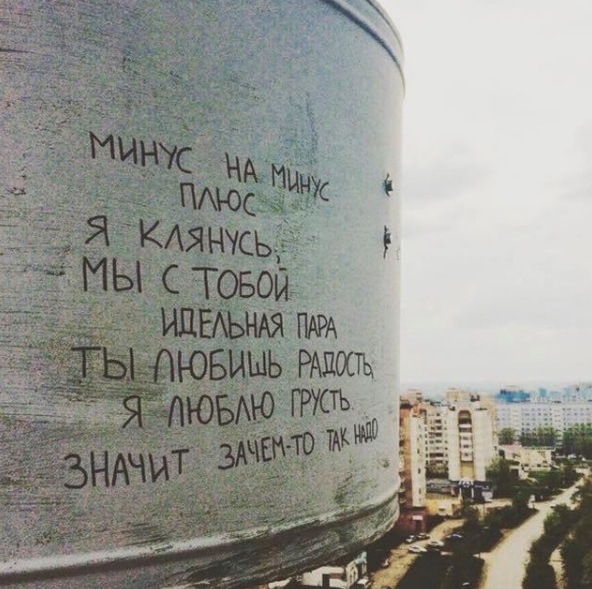 МИНУС НА МИНУС
ПЛЮС
Я КЛЯНУСЬ,
МЫ С ТОБОЙ
ИДЕЛЬНАЯ ПАРА
ТЫ ЛЮБИШЬ РАДОСТЬ,
Я ЛЮБЛЮ ГРУСТЬ.
ЗНАЧИТ ЗАЧЕМ-ТО ТАК НАДО